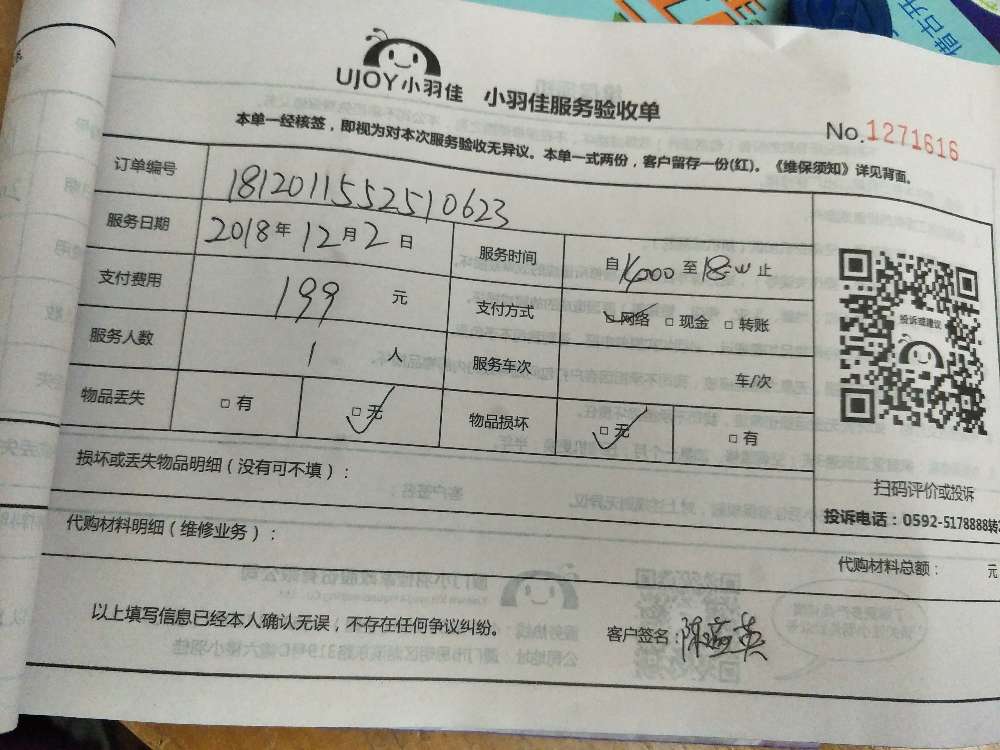 UJOY小羽佳 小羽佳服务验收单
No.1271616
本单一经核签，即视为对本次服务验收无异议。本单一式两份，客户留存一份(红)。《维保须知》详见背面。
订单编号 1812011552510623
服务日期 2018年12月2日 服务时间 自16:00至18:00止
支付费用 199 元 支付方式 □网络 □现金 □转账
服务人数 1 人 服务车次 车/次
物品丢失 □有 □无 物品损坏 □无 □有
投诉或建议
扫码评价或投诉
投诉电话：0592-5178888转
损坏或丢失物品明细（没有可不填）：
代购材料明细（维修业务）：
代购材料总额： 元
以上填写信息已经本人确认无误，不存在任何争议纠纷。
客户签名：陈燕英